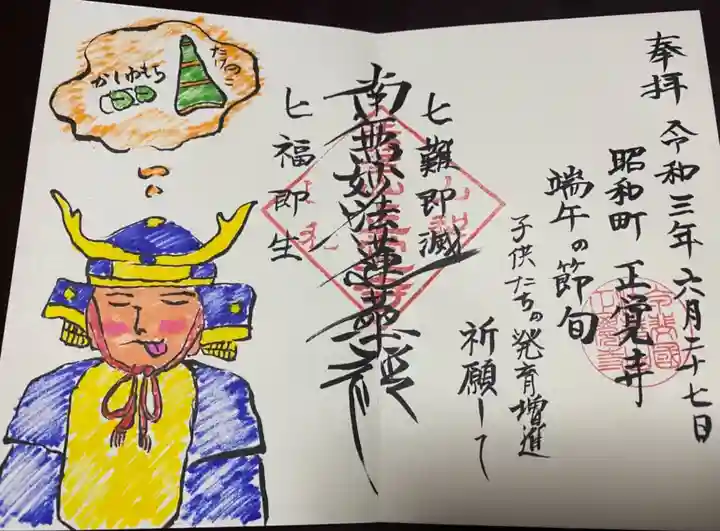 奉拝 令和三年六月二十七日
昭和町 正覚寺
端午の節句
子供たちの発育増進
祈願して
七難即滅
南無妙法蓮華経
七福即生
たけのこ
かしわもち